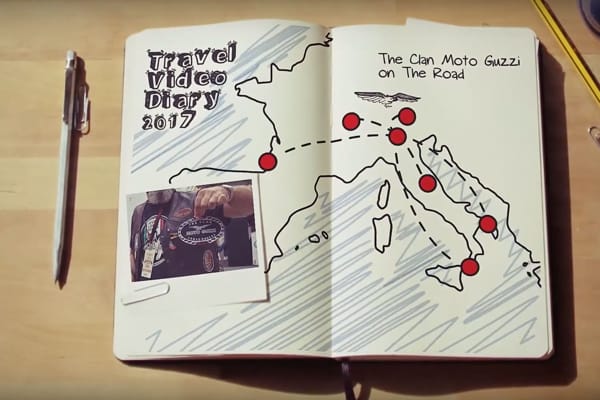 Travel
Video
Diary
2017
The Clan Moto Guzzi
on The Road
MOTO GUZZI